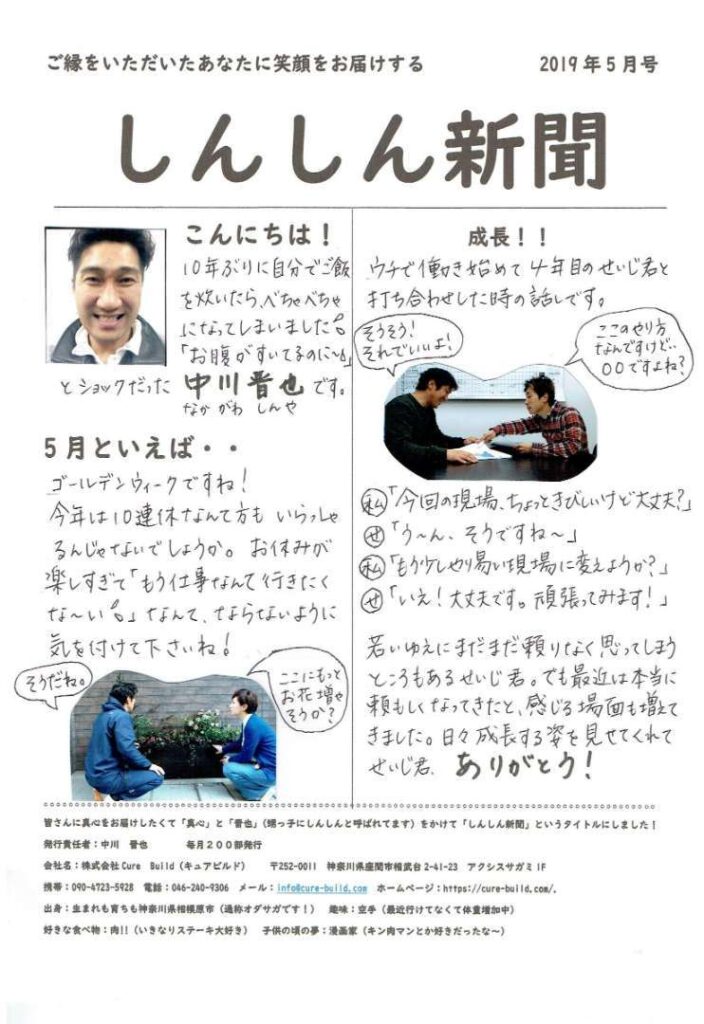 ご縁をいただいたあなたに笑顔をお届けする
2019年5月号
しんしん新聞
こんにちは！
10年ぶりに自分でご飯
を炊いたら、べちゃべちゃ
になってしまいました
「お腹がすいてるのに〜」
とショックだった
中川晋也です。
なかがわ しんや
5月といえば・・
ゴールデンウィークですね！
今年は10連休なんて方も いらっしゃ
るんじゃないでしょうか。お休みが
楽しすぎて「もう仕事なんて行きたく
な〜い」なんて、ならないように
気を付けて下さいね！
そうだね。
ここにもっと
お花増や
そうか？
成長！！
ウチで働き始めて4年目のせいじ君と
打ち合わせした時の話しです。
そうそう！
それでいいよ！
ここのやり方
なんですけど‥
〇〇ですよね？
私「今回の現場、ちょっときびしいけど大丈夫？」
せ「う〜ん、そうですね〜」
私「もう少しやり易い現場に変えようか？」
せ「いえ！大丈夫です。頑張ってみます！」
若いゆえにまだまだ頼りなく思ってしまう
ところもあるせいじ君。でも最近は本当に
頼もしくなってきたと、感じる場面も増えて
きました。日々成長する姿を見せてくれて
せいじ君、ありがとう！
皆さんに真心をお届けしたくて「真心」と「晋也」（甥っ子にしんしんと呼ばれてます）をかけて「しんしん新聞」というタイトルにしました！
発行責任者：中川 晋也 毎月200部発行
会社名：株式会社Cure Build（キュアビルド） 〒252-0011 神奈川県座間市相武台2-41-23 アクシスサガミ1F
携帯：090-4723-5928 電話：046-240-9306 メール：info@cure-build.com ホームページ：https://cure-build.com/.
出身：生まれも育ちも神奈川県相模原市（通称オダサガです！） 趣味：空手（最近行けてなくて体重増加中）
好きな食べ物：肉!!（いきなりステーキ大好き） 子供の頃の夢：漫画家（キン肉マンとか好きだったな〜）